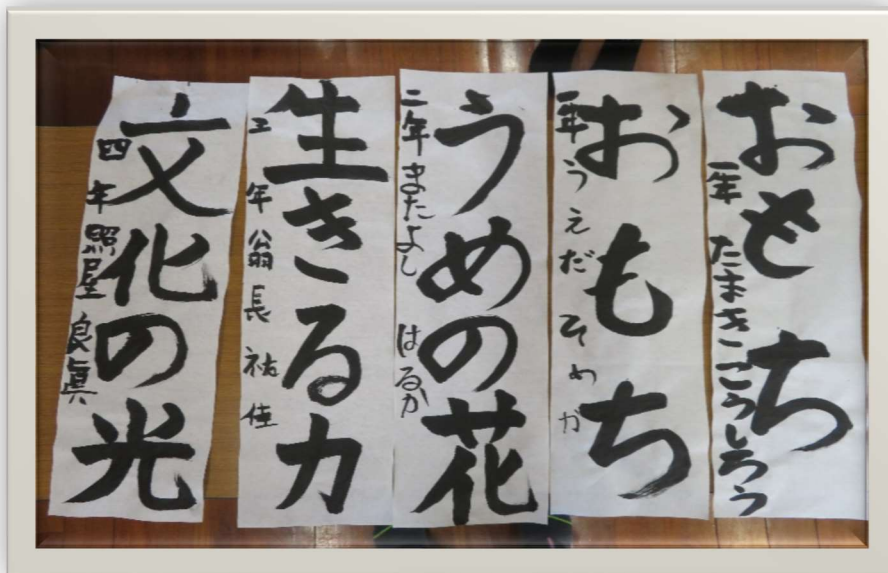 おもち
一年 たまき こうしろう
おもち
一年 うえだ
うめの花
二年 またよし はるか
生きる力
三年 翁長 祐佳
文化の光
四年 照屋 良眞